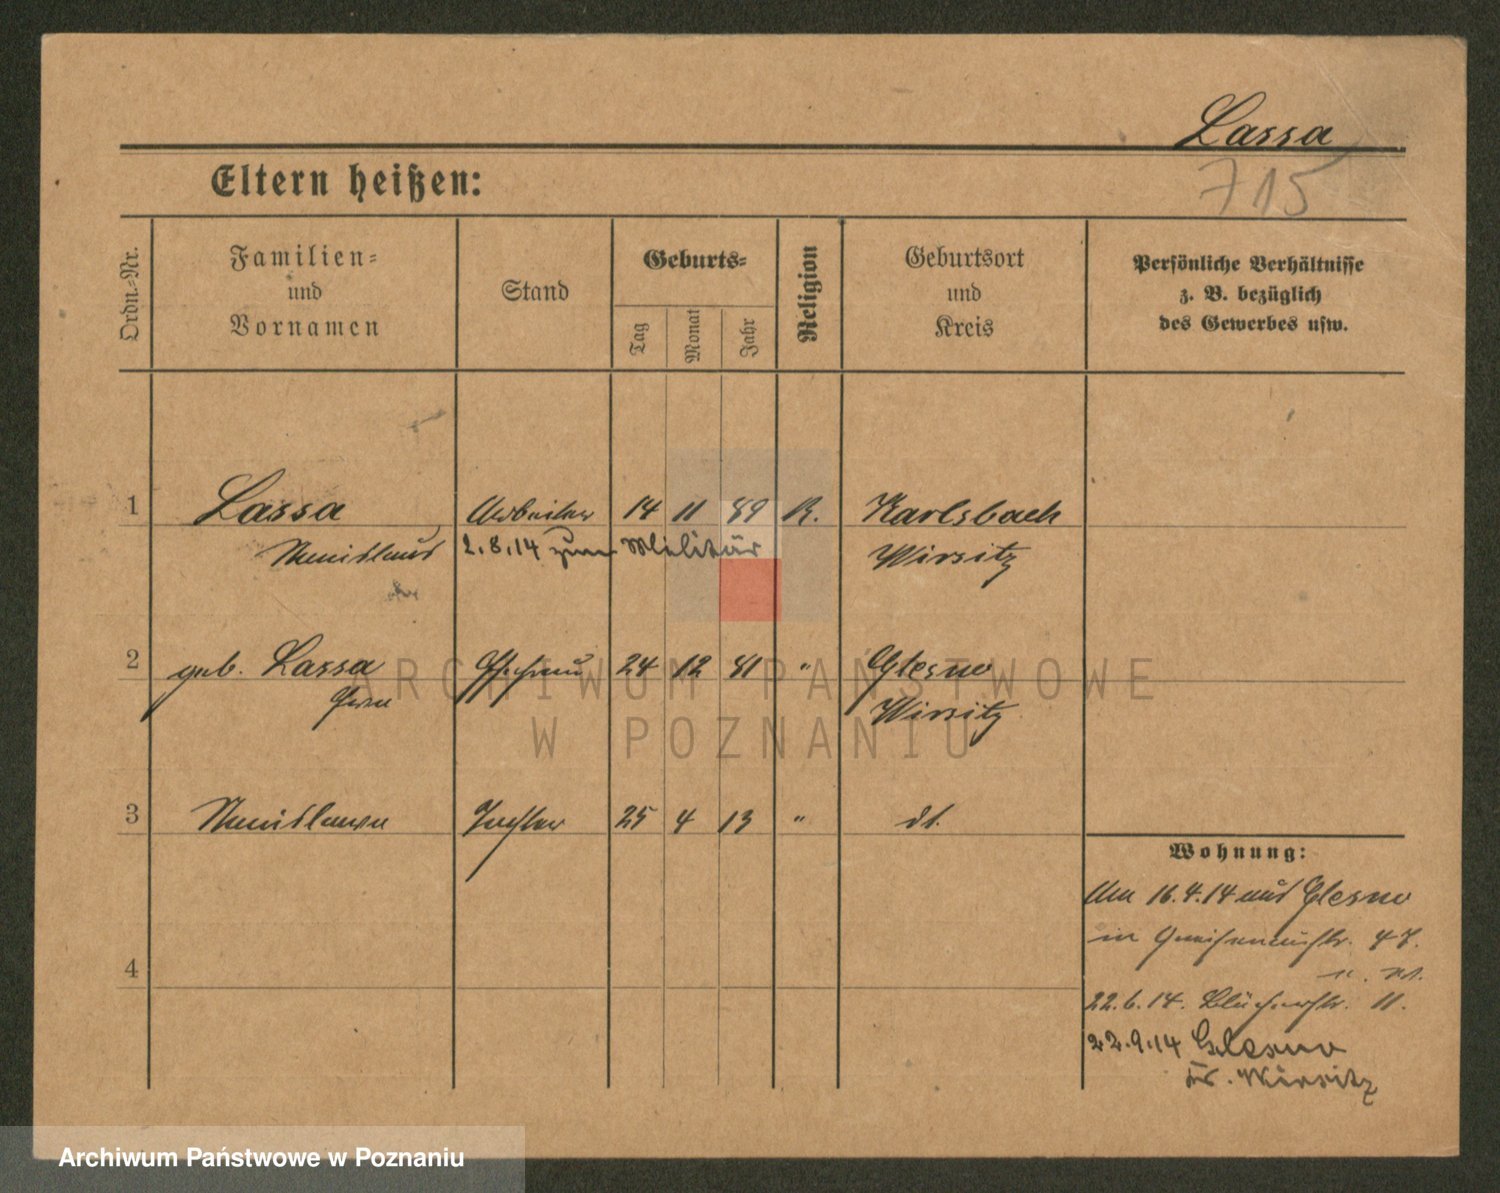 Lassa
715
Eltern heißen:
Ordn.-Nr.
Familien-
und
Vornamen
Stand
Geburts-
Tag
Monat
Jahr
Religion
Geburtsort
und
Kreis
Persönliche Verhältnisse
z. B. bezüglich
des Gewerbes usw.
1 Lassa Arbeiter 14 11 89 K. Karlsbach
Stanislaus 2.8.14 zum Militär Wirsitz
2 geb. Lassa Ehefrau 24 12 81 " Glesno
Wirsitz
3 Stanislawa Tochter 25 4 13 " dt.
Wohnung:
Am 16.4.14 aus Glesno
in Gneisenaustr. 47.
4
22.6.14. Blücherstr. 11.
22.9.14 Glesno
Kr. Wirsitz
ARCHIWUM PAŃSTWOWE
W POZNANIU
Archiwum Państwowe w Poznaniu